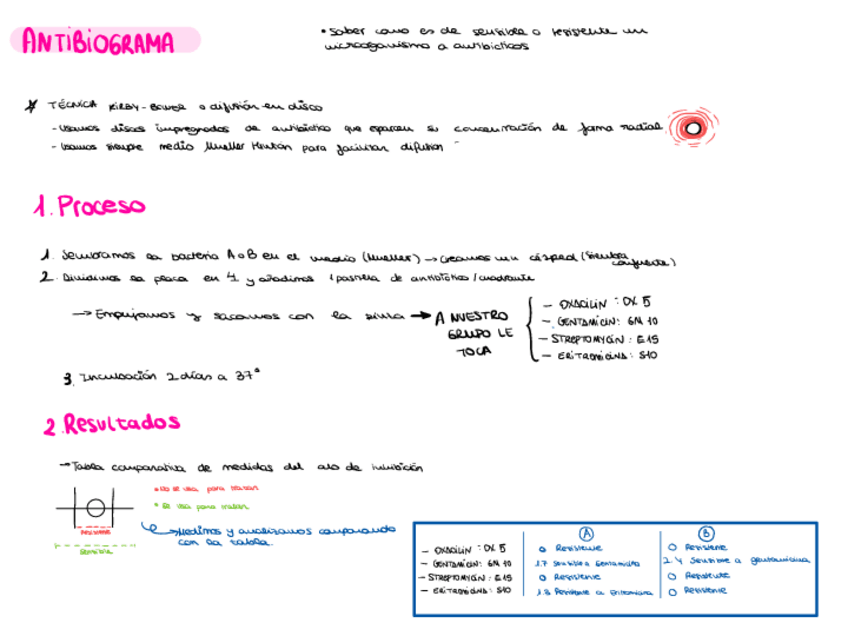 ANTIBIOGRAMA
• Saber como es de sensible o resistente un
microorganismo a antibióticos
* TÉCNICA KIRBY-BAUER o difusión en disco
- Usamos discos impregnados de antibiótico que esparcen su concentración de forma radial
- Usamos siempre medio Mueller Hinton para facilitar difusión
1. Proceso
1. Sembramos la bacteria A o B en el medio (Mueller) → Creamos un césped (Siembra
confluente)
2. Dividimos la placa en 4 y añadimos 1 pastilla de antibiótico / cuadrante
→ Empujamos y sacamos con la pinza → A NUESTRO
GRUPO LE
TOCA
- OXACILIN : OX 5
- GENTAMICIN: GM 10
- STREPTOMYCIN : E15
- ERITROMICINA : S10
3. Incubación 2 días a 37°
2. Resultados
→ Tabla comparativa de medidas del alo de inhibición
• No se usa para tratar
• Se usa para tratar
Resistente
Sensible
→ Medimos y analizamos comparando
con la tabla.
A B
- OXACILIN : OX 5 0 Resistente 0 Resistente
- GENTAMICIN: GM 10 1.7 Sensible a Gentamicina 2.4 Sensible a gentamicina
- STREPTOMYCIN : E15 0 Resistente 0 Resistente
- ERITROMICINA : S10 1.3 Resistente a Eritromicina 0 Resistente